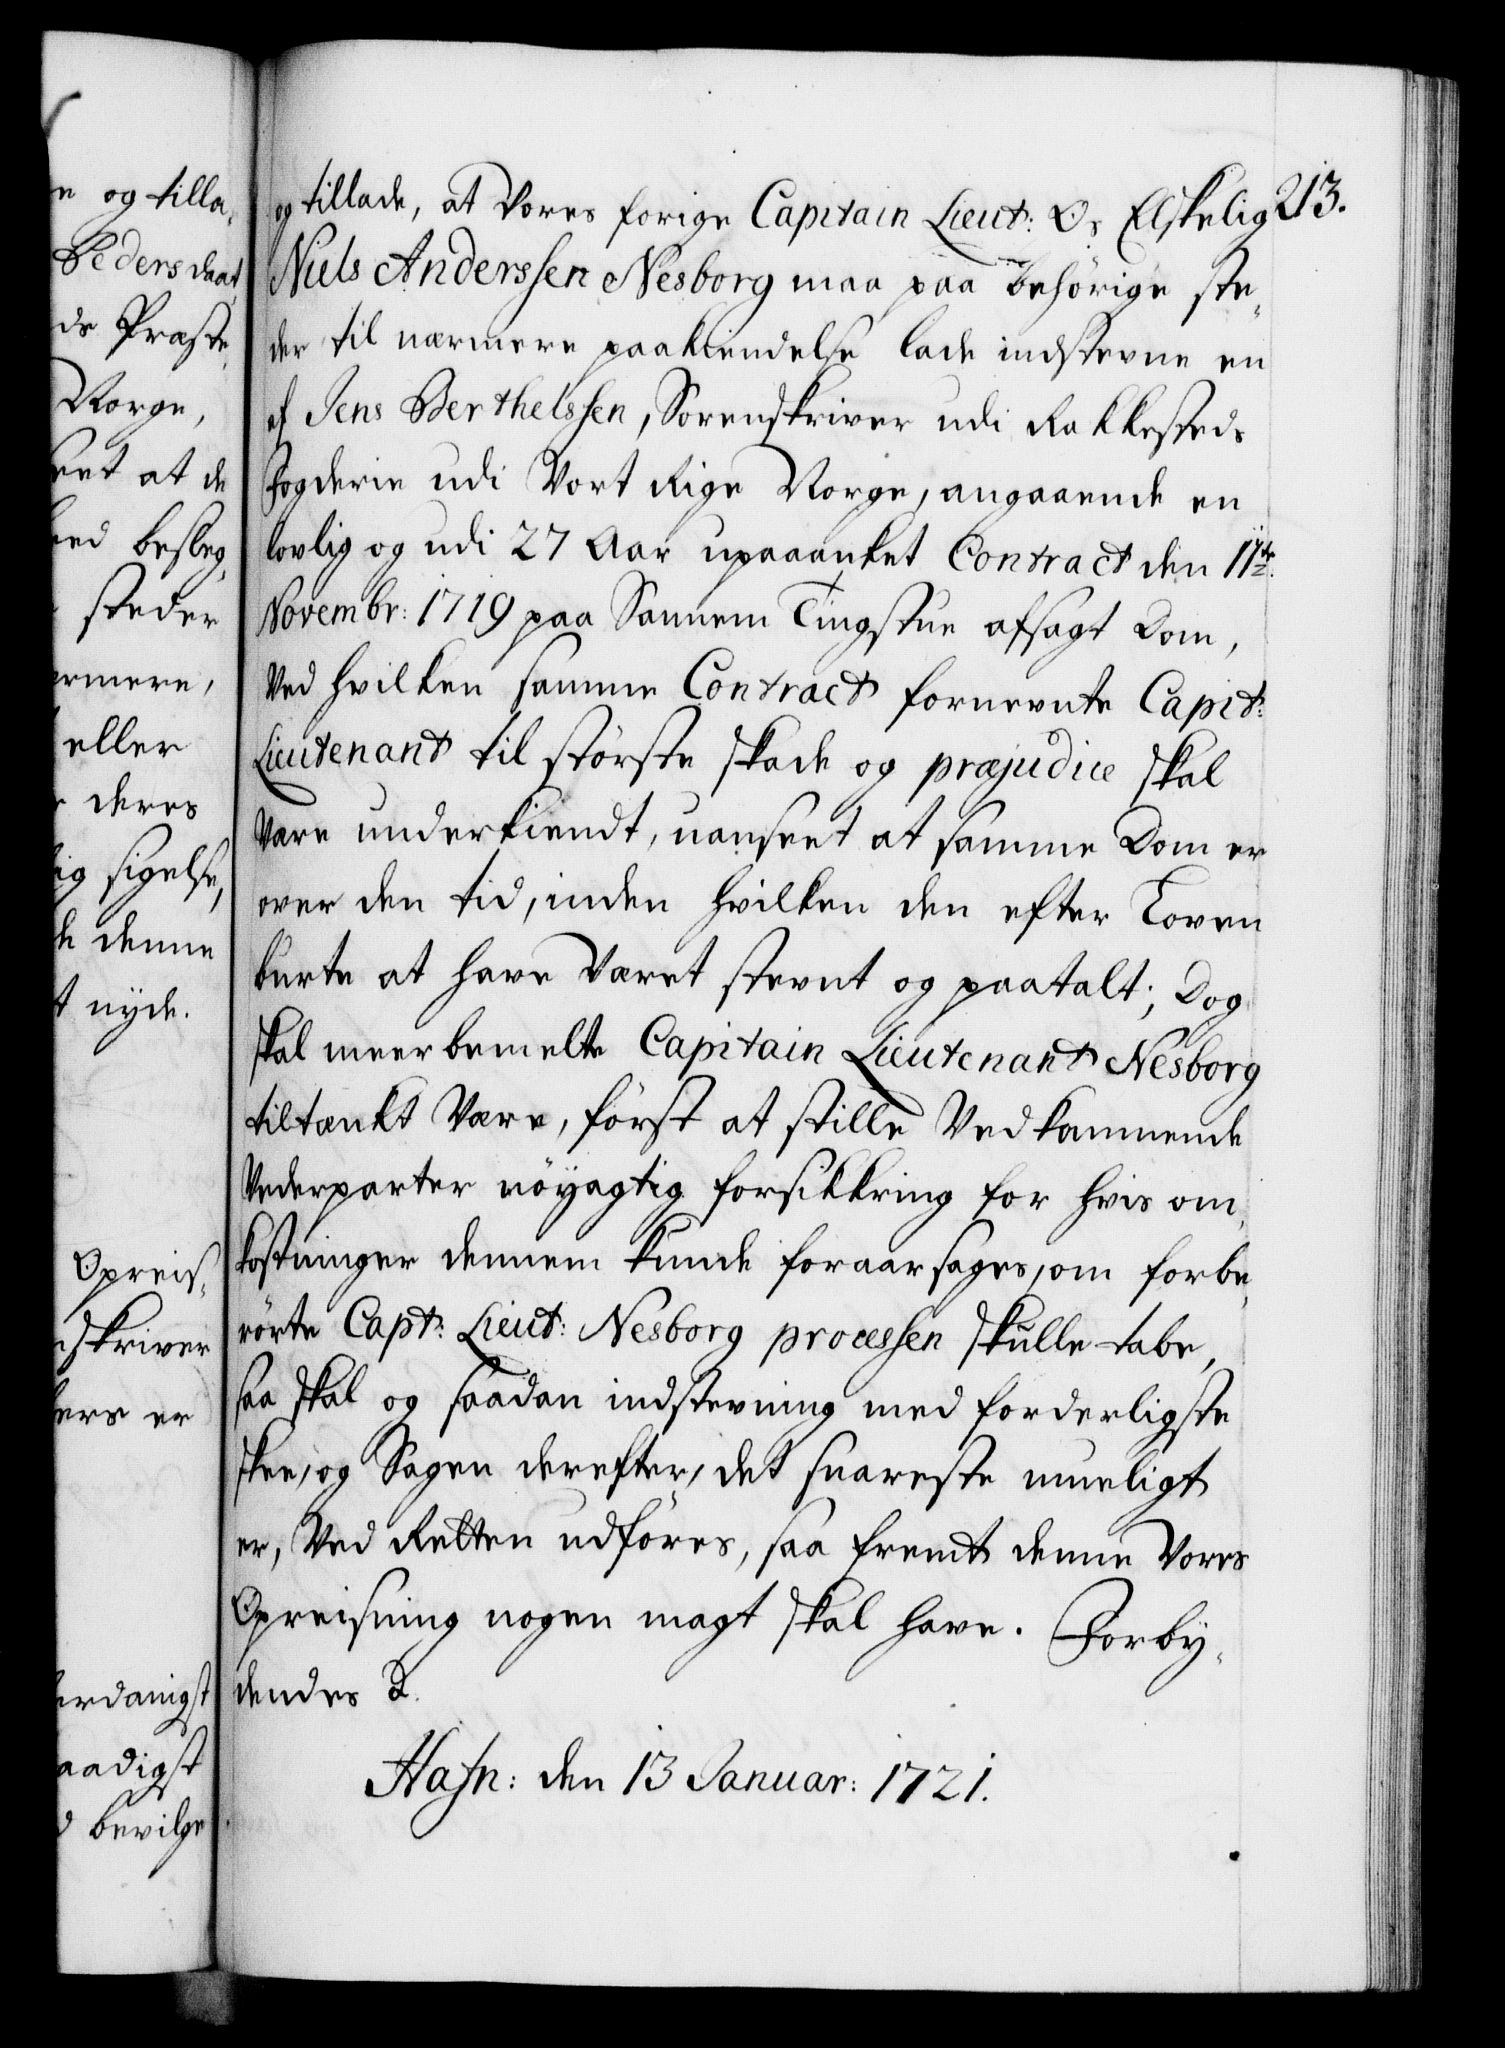 213.
og tillade, at Vores forige Capitain Lieut: Os Elskelig
Niels Anderssen Nesborg maa paa behörige ste-
der til nærmere paakiendelse lade indstevne en
af Jens Berthelssen, Sorenskriver udi Rakkesteds
Fogderie udi Vort Rige Norge, angaaende en
lovlig og udi 27 Aar upaaanket Contract den 11te
Novembr: 1719 paa Sannem Tingstue afsagt Dom,
Ved hvilken samme Contract fornevnte Capit:
Lieutenant til störste skade og præjudice skal
være underkiendt, uanseet at samme Dom er
over den tid, inden hvilken den efter Loven
burte at have Været stevnt og paatalt; Dog
skal meerbemelte Capitain Lieutenant Nesborg
tiltænkt Være, först at stille Vedkommende
Vederparter nöyagtig forsikkring for hvis om-
kostninger dennem kunde foraarsages, om forbe-
rörte Capt: Lieut: Nesborg processen skulle tabe,
saa skal og saadan indstevning med forderligste
skee, og Sagen derefter, det snareste mueligt
er, Ved Retten udföres, saa fremt denne Vores
Opreisning nogen magt skal have. Forby-
dendes &.
Hafn: den 13 Januar: 1721.
e og tilla-
Pedersdaat
ds Præste-
Norge,
eet at de
ed besleg-
steder
ermere,
eller
deres
ig sigelse,
de denne
t nyde.
Opreis-
dskriver
ers er
erdanigst
aadigst
d bevilge